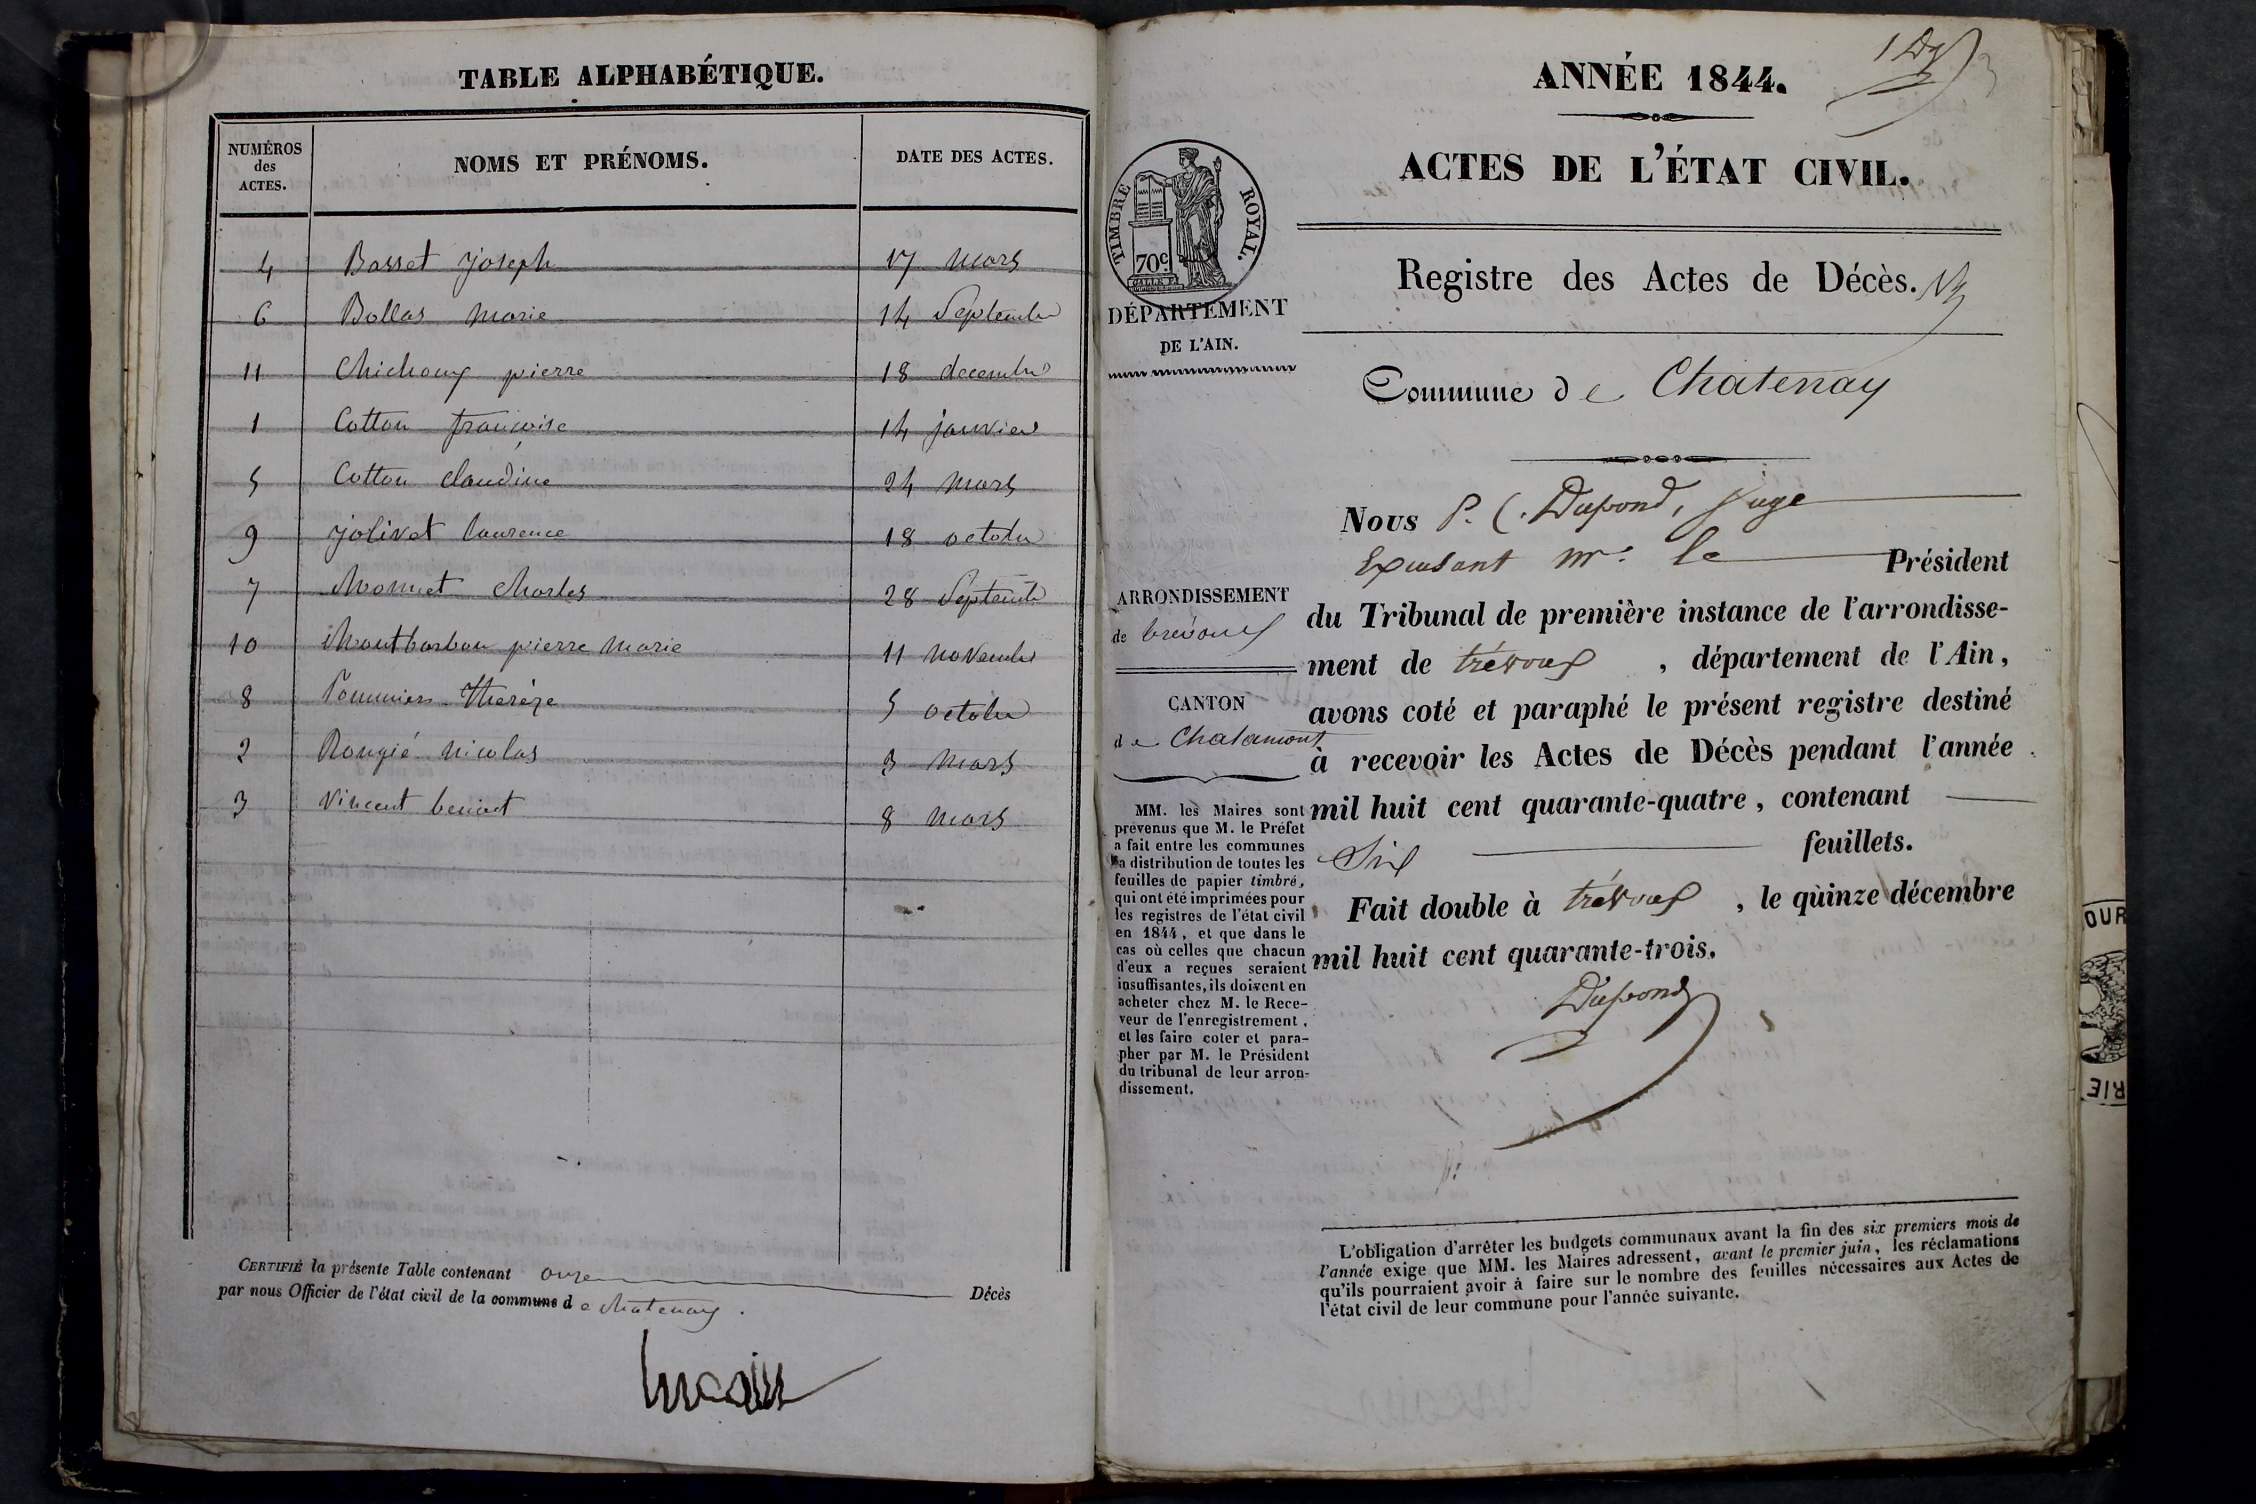 TABLE ALPHABÉTIQUE.
NUMÉROS
des
ACTES.
NOMS ET PRÉNOMS.
DATE DES ACTES.
4 Basset joseph 17 mars
6 Bollas marie 14 Septembre
11 Chichoux pierre 18 decembre
1 Cotton françoise 14 janvier
5 Cotton claudine 24 mars
9 jolivet laurence 18 octobre
7 Monnet charles 28 Septembre
10 Montbarbon pierre marie 11 novembre
8 Pommiers Thereze 5 octobre
2 Rougié nicolas 3 mars
3 Vincent benoit 8 mars
CERTIFIÉ la présente Table contenant onze Décès
par nous Officier de l'état civil de la commune de chatenay.
ANNÉE 1844.
ACTES DE L'ÉTAT CIVIL.
TIMBRE ROYAL.
70c.
DÉPARTEMENT
DE L'AIN.
Registre des Actes de Décès.
Commune de Chatenay
ARRONDISSEMENT
de trévoux
CANTON
de Chalamont
MM. les Maires sont
prévenus que M. le Préfet
a fait entre les communes
la distribution de toutes les
feuilles de papier timbré,
qui ont été imprimées pour
les registres de l'état civil
en 1844, et que dans le
cas où celles que chacun
d'eux a reçues seraient
insuffisantes, ils doivent en
acheter chez M. le Rece-
veur de l'enregistrement,
et les faire coter et para-
pher par M. le Président
du tribunal de leur arron-
dissement.
Nous P. C. Dupond, juge
Expusant mr. le Président
du Tribunal de première instance de l'arrondisse-
ment de trévoux, département de l'Ain,
avons coté et paraphé le présent registre destiné
à recevoir les Actes de Décès pendant l'année
mil huit cent quarante-quatre, contenant
Six feuillets.
Fait double à trévoux, le quinze décembre
mil huit cent quarante-trois.
Dupond
L'obligation d'arrêter les budgets communaux avant la fin des six premiers mois de
l'année exige que MM. les Maires adressent, avant le premier juin, les réclamations
qu'ils pourraient avoir à faire sur le nombre des feuilles nécessaires aux Actes de
l'état civil de leur commune pour l'année suivante.